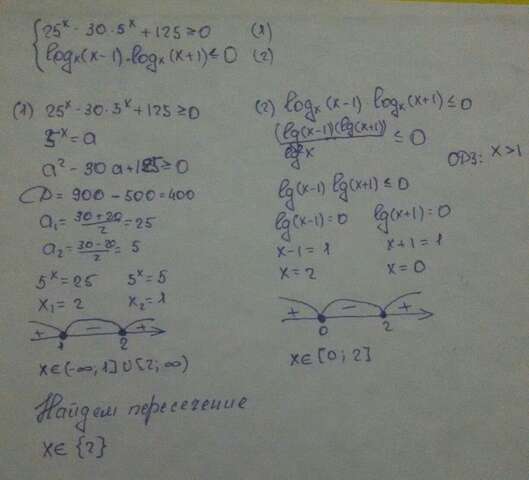 25ˣ - 30·5ˣ + 125 ≥ 0 (1)
logₓ(x-1)·logₓ(x+1) ≤ 0 (2)
(1) 25ˣ - 30·5ˣ + 125 ≥ 0
5ˣ = a
a² - 30a + 125 ≥ 0
D = 900 - 500 = 400
a₁ = (30+20)/2 = 25
a₂ = (30-20)/2 = 5
5ˣ = 25 5ˣ = 5
x₁ = 2 x₂ = 1
+ - +
1 2
x∈(-∞; 1]∪[2; ∞)
(2) logₓ(x-1) logₓ(x+1) ≤ 0
(lg(x-1)(lg(x+1))/lg²x ≤ 0
ОДЗ: x>1
lg(x-1) lg(x+1) ≤ 0
lg(x-1) = 0 lg(x+1) = 0
x-1 = 1 x+1 = 1
x = 2 x = 0
+ - +
0 2
x∈[0; 2]
Найдем пересечение
x∈{2}